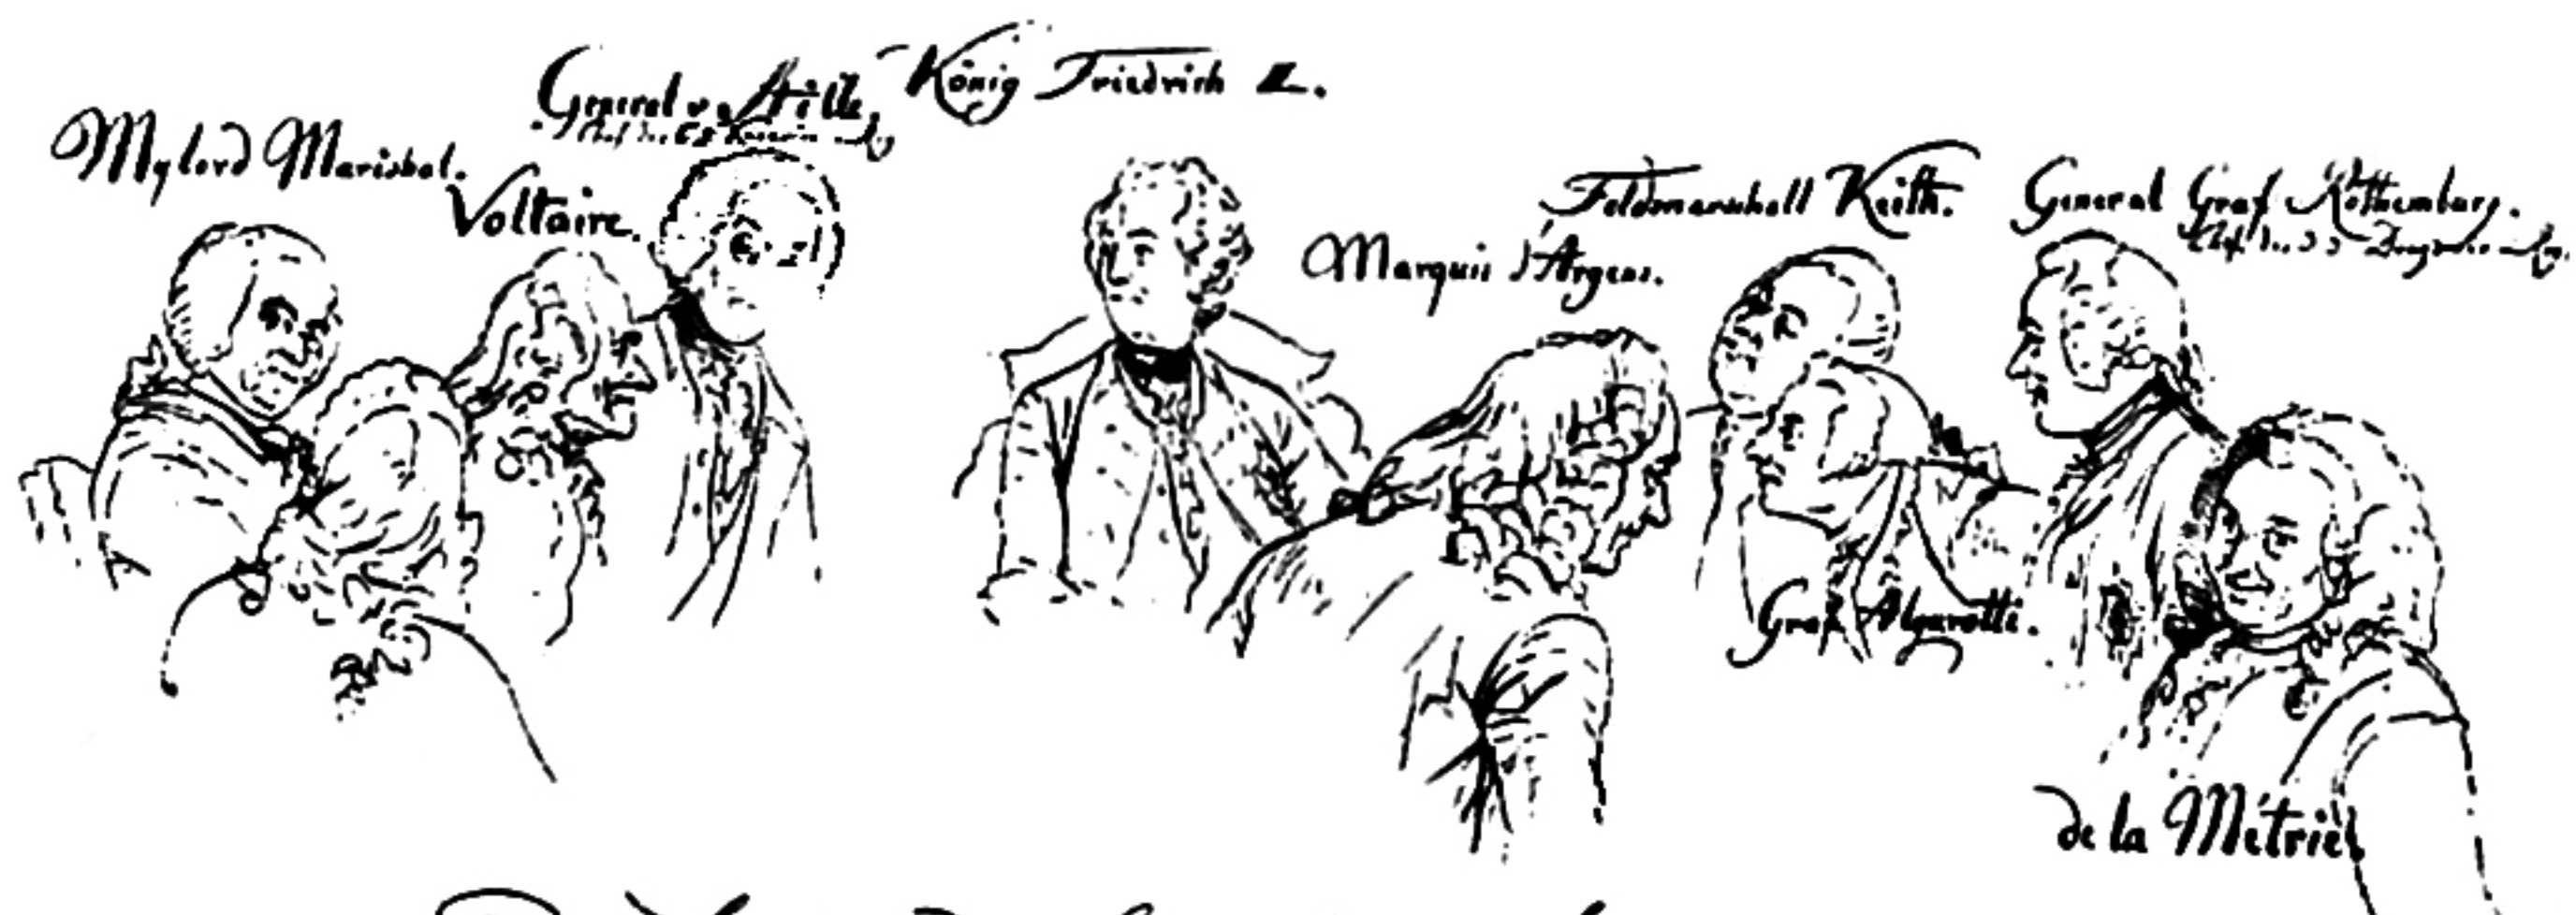 Mylord Marishal.
Voltaire.
General v. Stille,
König Friedrich II.
Marquis d'Argens.
Feldmarschall Keith.
General Graf Rothemburg.
Graf Algarotti.
de la Métrie